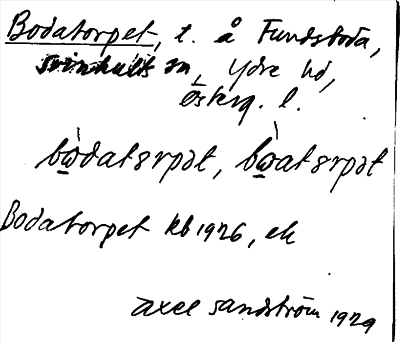 Bodatorpet, t. å Fundsboda,
Svinhults sn, Ydre hd,
Österg. l.
bò̲datɘrpət, bò̲atɘrpət
Bodatorpet kb 1926, ek
Axel Sandström 1929